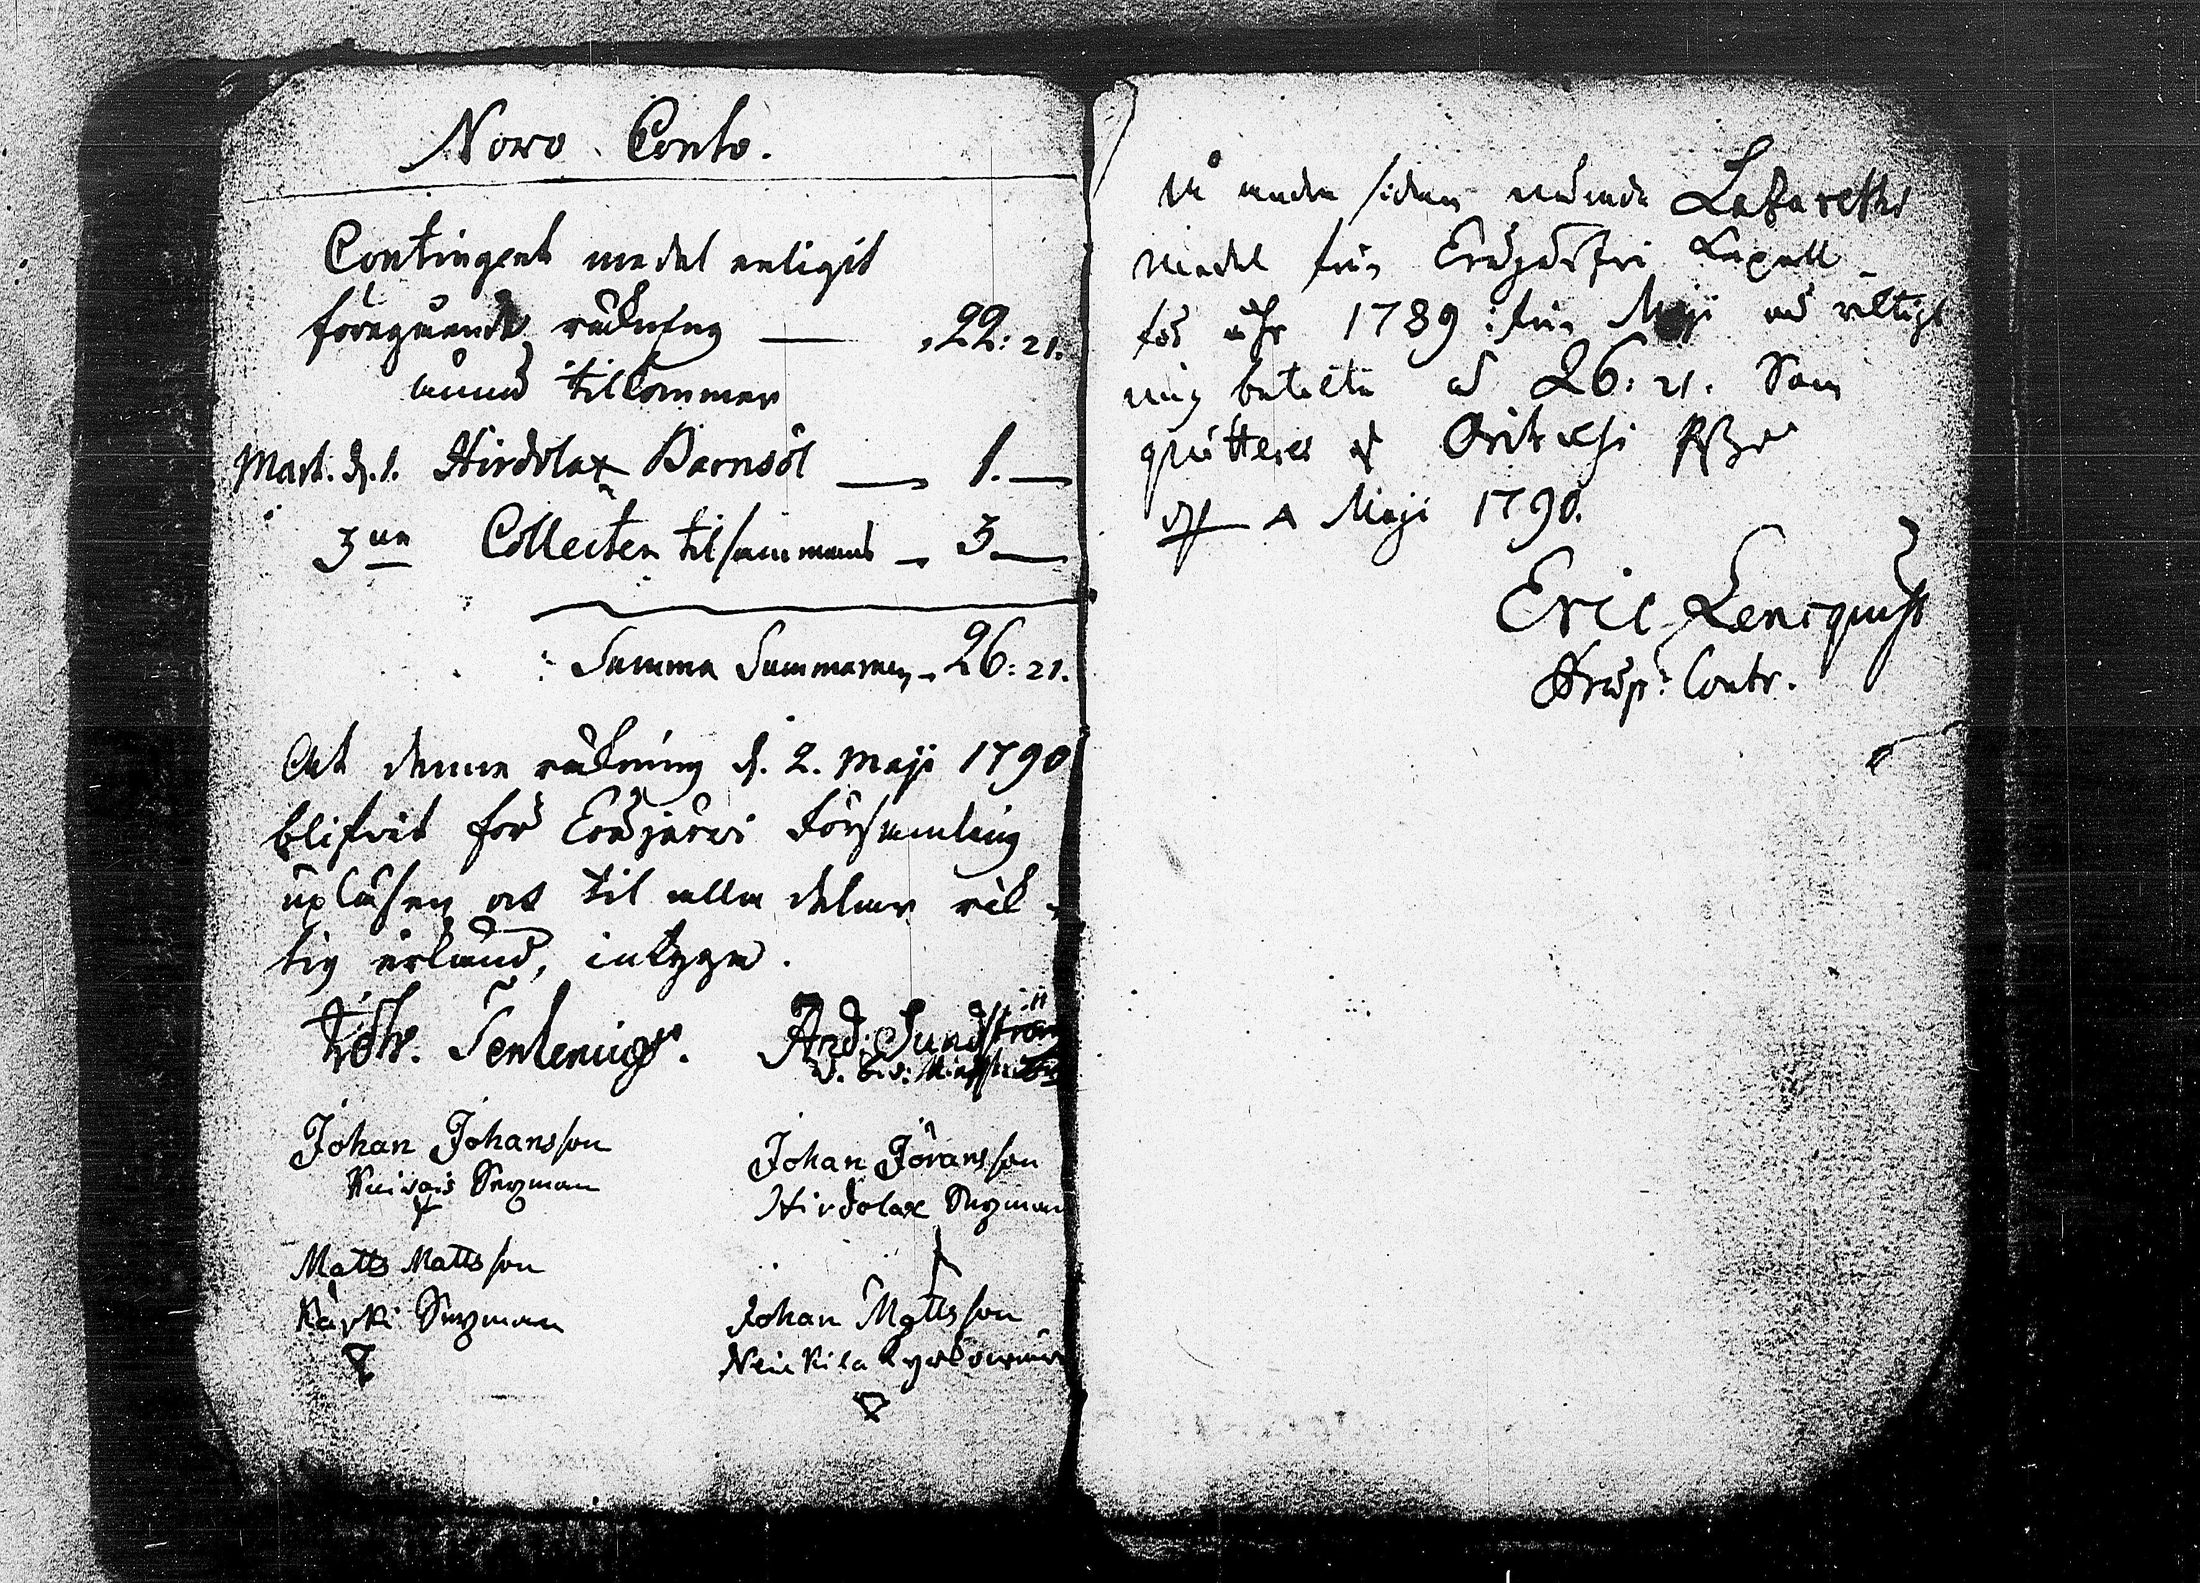 Novo Conto.
Contingent medel enligit
föregåend räkning — 22: 21.
ännu tilkommer
Mart. d. 1. Hirdolax Barnsöl — 1. —
3ne Collecten tilsammans — 3 —
Summa Summarum - 26: 21.
At denna räkning d. 2. Maji 1790
blifvit för Eräjärvi Församling
upläsen och til alla delar rik-
tig erkänd, intyga.
Joh. Tenlenius. And: Sundström
Johan Johansson
Sexman
Johan Göransson
Hirdolax Sexman
Matts Mattsson
Kärki Sexman
Johan Mattsson
Neickila Kyrkovärd
På andra sidan nämde Lazaretts
Medel från Eräjärfvi Capell
för åhr 1789: från Maji är riktigt
mig betalte med 26: 21. Som
quitteras af Orihvesi
d. Maji 1790.
Eric Lencquist
Prep: Contr.